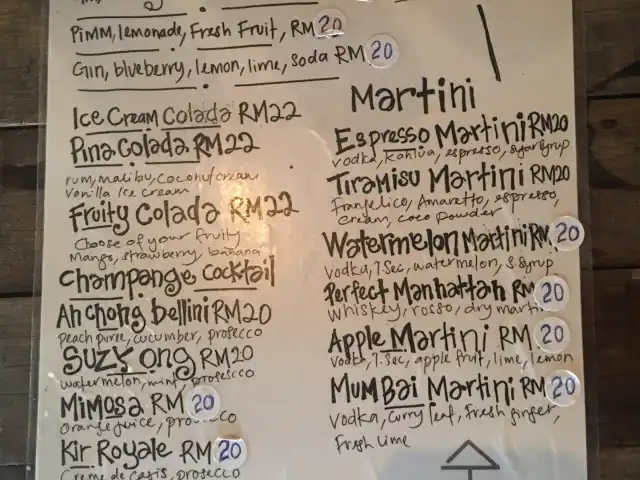 Pimm, lemonade, Fresh Fruit, RM 20
Gin, blueberry, lemon, lime, soda RM 20
Ice Cream Colada RM22
Pina Colada RM22
rum, malibu, coconut cream
Vanilla Ice cream
Fruity Colada RM22
Choose of your fruity
Mango, strawberry, banana
Champange Cocktail
An Chong bellini RM20
peach puree, cucumber, prosecco
Suzy Ong RM20
watermelon, mint, prosescco
Mimosa RM 20
Orange juice,
Kir Royale RM 20
Creme de casis, prosecco
Martini
Espresso Martini RM20
vodka, Kahlua, espresso, sugar syrup
Tiramisu Martini RM20
Franjelico, Amaretto, espresso,
cream, coco powder
Watermelon Martini RM. 20
Vodka, T.Sec, watermelon, S.syrup
Perfect Manhattan RM 20
whiskey, rosso, dry martini
Apple Martini RM 20
Vodka, T.Sec, apple fruit, lime, lemon
Mumbai Martini RM 20
Vodka, Curry leaf, Fresh ginger,
Fresh lime